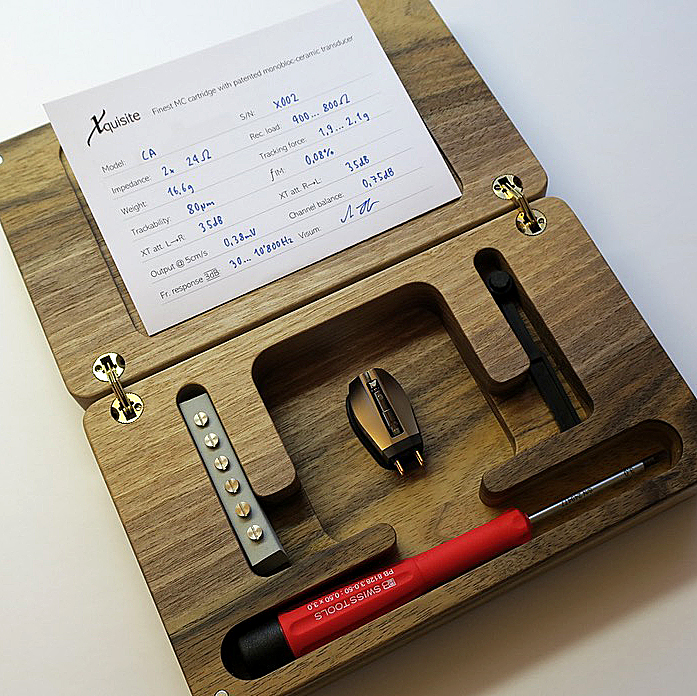 Xquisite Finest MC cartridge with patented monobloc-ceramic transducer
Model: CA S/N: X002
Impedance: 2x 24Ω Rec. load: 400...800Ω
Weight: 16,6g Tracking force: 1,9...2,1g
Trackability: 80µm fIM: 0,08%
XT att. L→R 35dB XT att. R→L 35dB
Output @ 5cm/s 0,38mV Channel balance: 0,75dB
Fr. response 3dB 30...10'800Hz Visum:
PB SWISS TOOLS
PB 8128.3,0-50 · 0,50 x 3,0